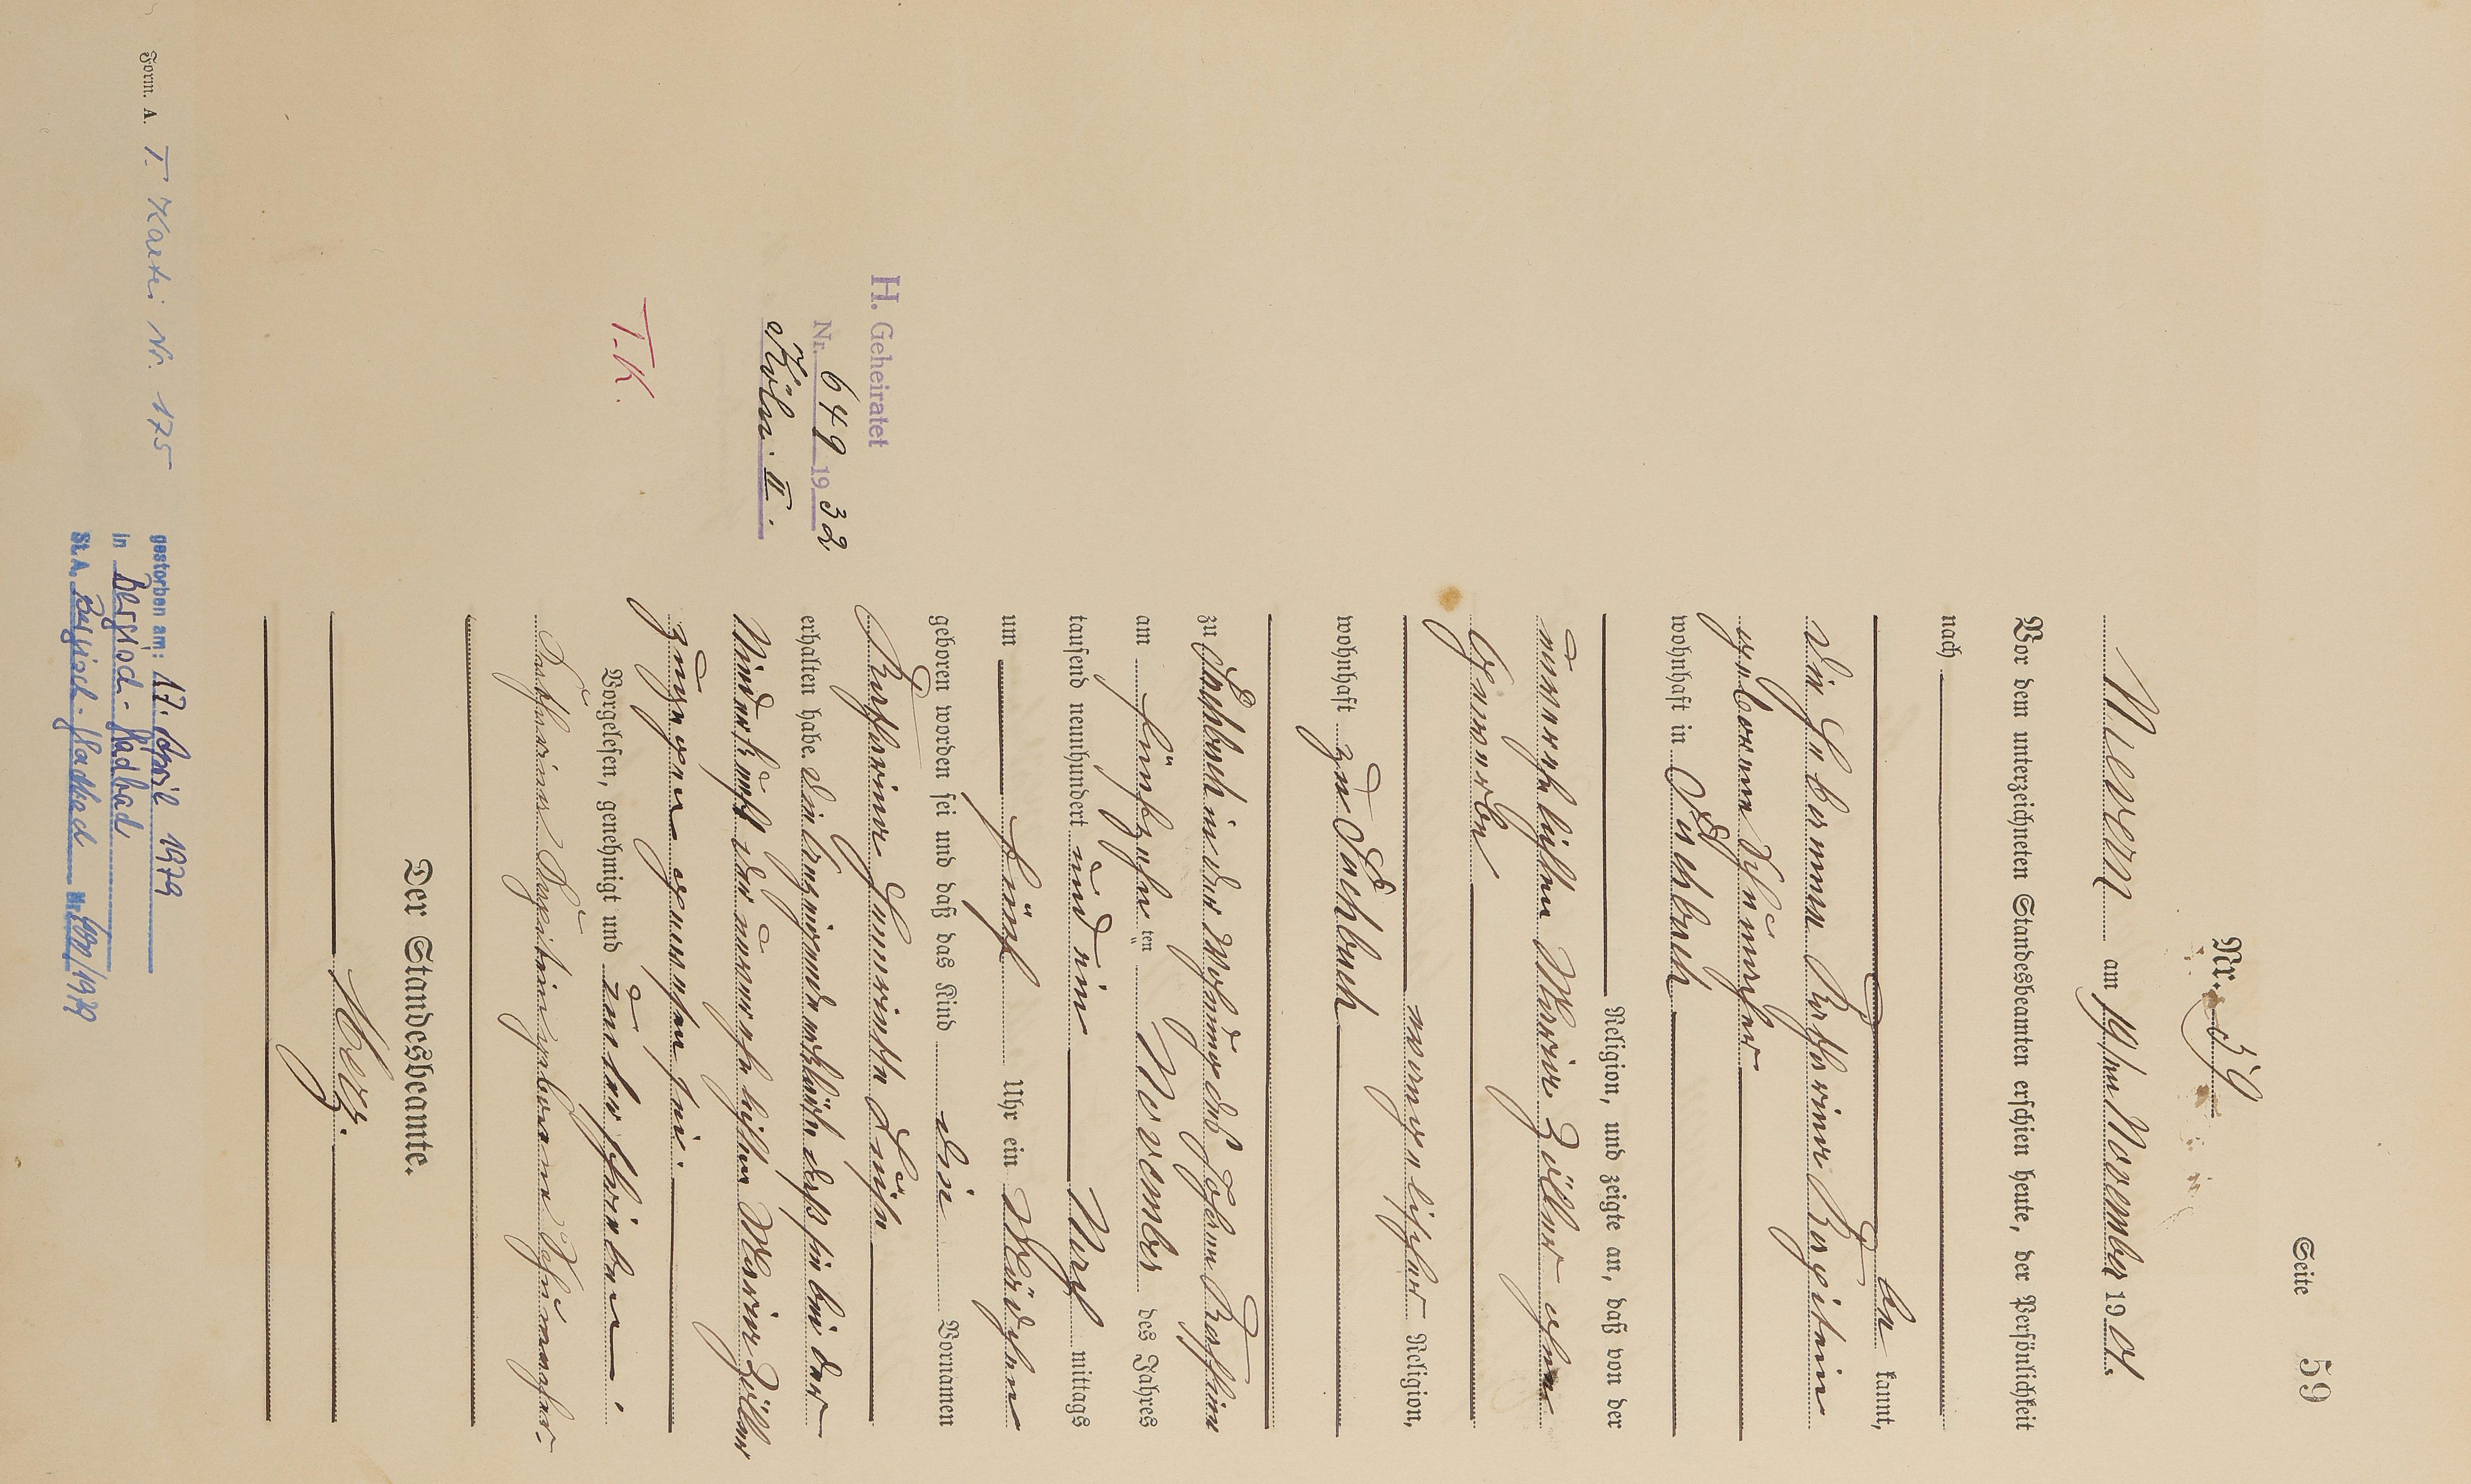 Seite 59
Nr. 59
Nievern am 19ten November 1901.
Vor dem unterzeichneten Standesbeamten erschien heute, der Persönlichkeit
nach
be kannt,
die Hebamme Katharina
geborene
wohnhaft in Dachbach
Religion, und zeigte an, daß von der
unverehelichten Maria Zöller ohne
Gewerbe
evangelischer Religion,
wohnhaft zu Dachbach
zu Fachbach in der Wohnung des Johann
am fünfzehn ten November des Jahres
tausend neunhundert und ein Nach mittags
um fünf Uhr ein Mädchen
geboren worden sei und daß das Kind die Vornamen
Katharina Henriette Luise
erhalten habe. Die Anzeigende erklärte, daß sie bei der
Niederkunft der unverehelichten Maria Zöller
zugegen gewesen sei.
Vorgelesen, genehmigt und unterschrieben.
Katharina geborene
Der Standesbeamte.
H. Geheiratet
Nr. 649 1932
Köln II.
T.K.
Form. A.
T. Kartei Nr. 175
gestorben am: 17. April 1979
in Bergisch-Gladbach
St.A. Bergisch-Gladbach Nr. /1979